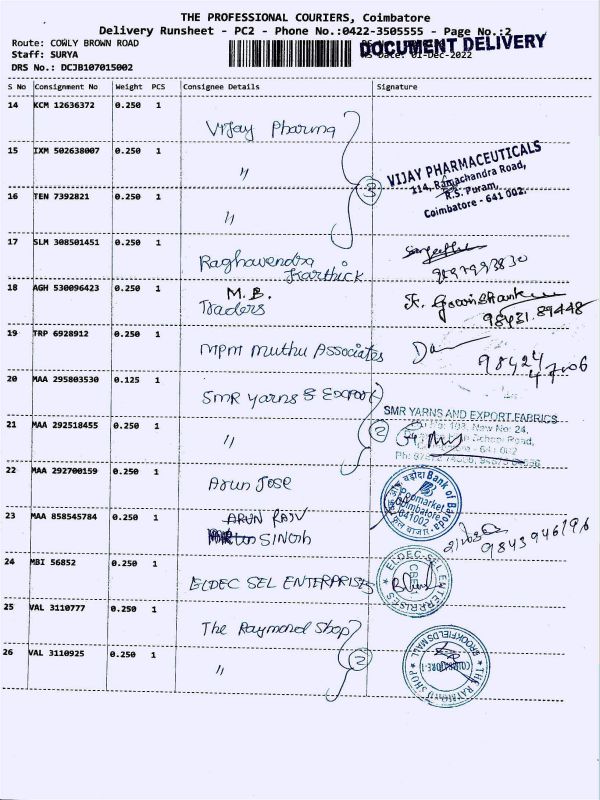 THE PROFESSIONAL COURIERS, Coimbatore
Delivery Runsheet - PC2 - Phone No.:0422-3505555 - Page No.:2
Route: COWLY BROWN ROAD
DOCUMENT DELIVERY
Staff: SURYA
Date: 01-Dec-2022
DRS No.: DCJB107015002
S No Consignment No Weight PCS Consignee Details Signature
14 KCM 12636372 0.250 1
Vijay Pharma
15 IXM 502638007 0.250 1
〃
VIJAY PHARMACEUTICALS
114, Ramachandra Road,
R.S. Puram,
Coimbatore - 641 002.
3
16 TEN 7392821 0.250 1
〃
17 SLM 308501451 0.250 1
Raghavendra
Karthick
18 AGH 530096423 0.250 1
M.B.
Traders
98431 89448
19 TRP 6928912 0.250 1
MPM Muthu Associates
98424
47006
20 MAA 295803530 0.125 1
SMR Yarns & Export
21 MAA 292518455 0.250 1
〃
2
SMR YARNS AND EXPORT FABRICS
New No: 24,
School Road,
22 MAA 292700159 0.250 1
Arun Jose
Bank of Baroda
Poomarket
Coimbatore
641002
23 MAA 858545784 0.250 1
ARUN RAJV
SINGH
9843946196
24 MBI 56852 0.250 1
ELDEC SEL ENTERPRISES
ELDEC SEL ENTERPRISES
CBE-1
25 VAL 3110777 0.250 1
The Raymond Shop
26 VAL 3110925 0.250 1
〃
2
THE RAYMOND SHOP
BROOKFIELDS MALL
COIMBATORE-1